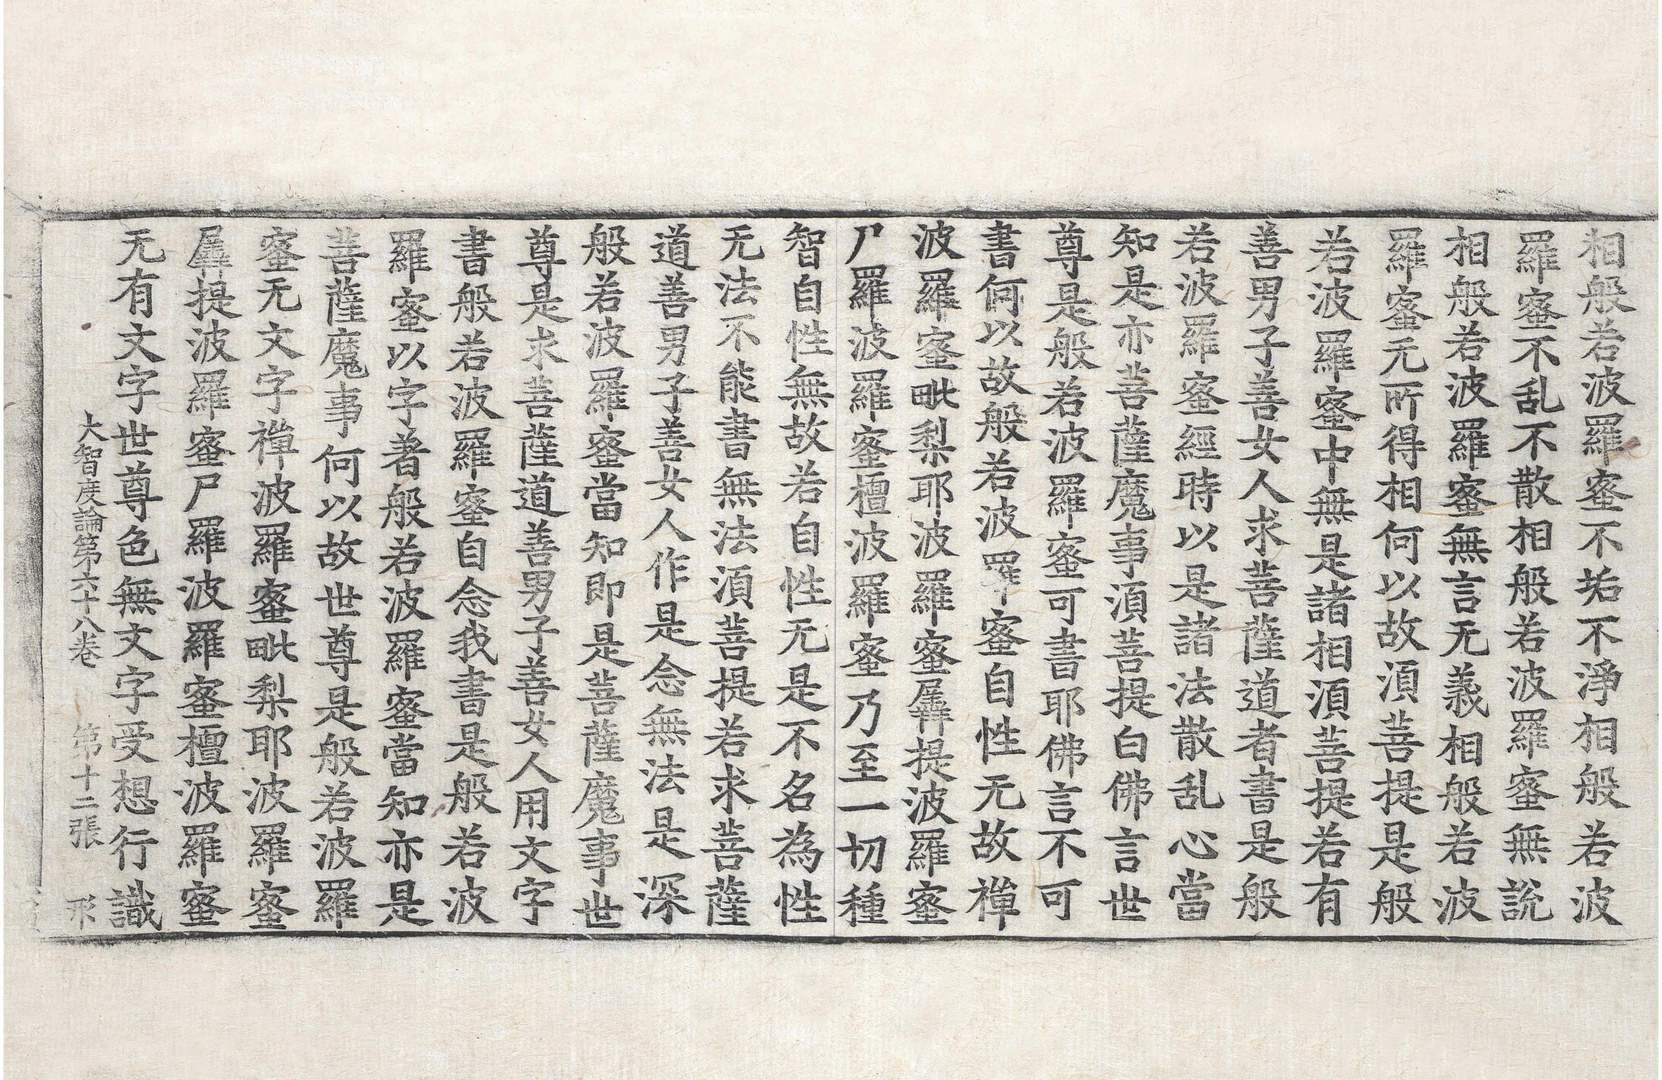 相般若波羅蜜不垢不淨相般若波
羅蜜不乱不散相般若波羅蜜無說
相般若波羅蜜無言无義相般若波
羅蜜无所得相何以故湏菩提是般
若波羅蜜中無是諸相湏菩提若有
善男子善女人求菩薩道者書是般
若波羅蜜經時以是諸法散乱心當
知是亦菩薩魔事湏菩提白佛言世
尊是般若波羅蜜可書耶佛言不可
書何以故般若波羅蜜自性无故禪
波羅蜜毗梨耶波羅蜜羼提波羅蜜
尸羅波羅蜜檀波羅蜜乃至一切種
智自性無故若自性无是不名為性
无法不能書無法湏菩提若求菩薩
道善男子善女人作是念無法是深
般若波羅蜜當知即是菩薩魔事世
尊是求菩薩道善男子善女人用文字
書般若波羅蜜自念我書是般若波
羅蜜以字著般若波羅蜜當知亦是
菩薩魔事何以故世尊是般若波羅
蜜无文字禪波羅蜜毗梨耶波羅蜜
羼提波羅蜜尸羅波羅蜜檀波羅蜜
无有文字世尊色無文字受想行識
大智度論第六十八卷 第十二張 形